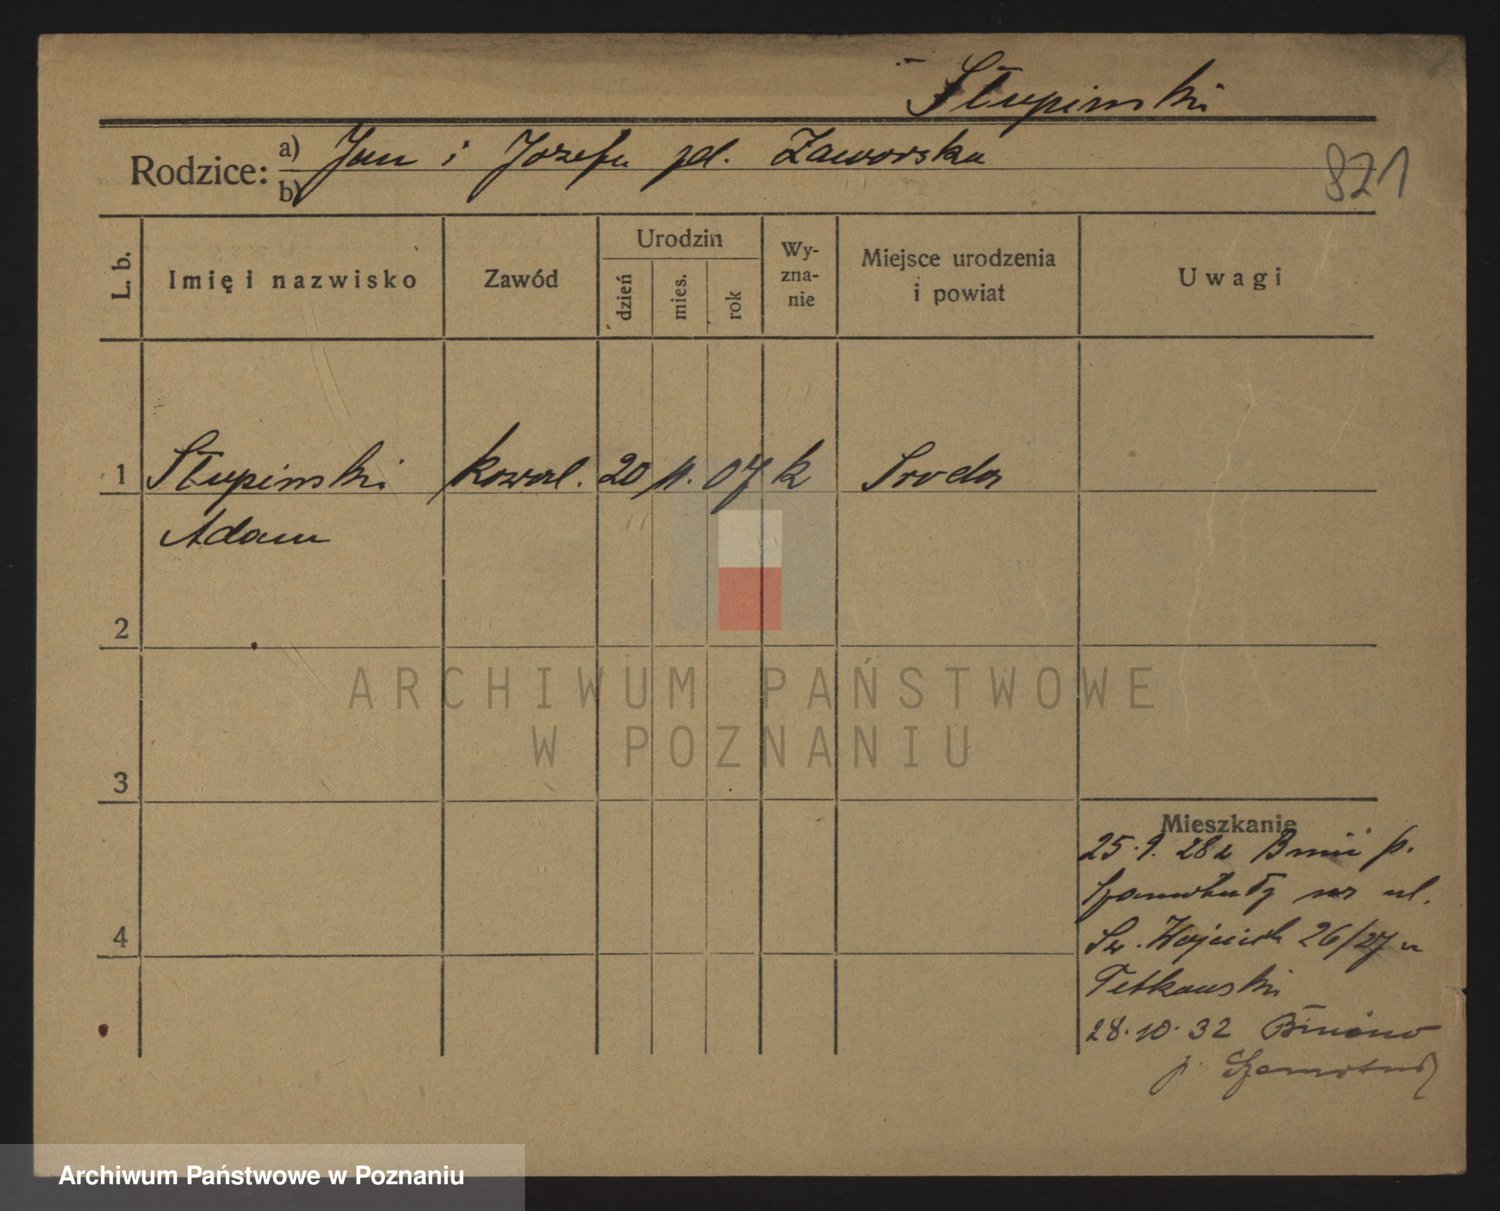 Słupinski
Rodzice: a) Jan i Jozefa zd. Zaworska
b)
821
L. b.
Imię i nazwisko
Zawód
Urodzin
dzień
mies.
rok
Wy-
zna-
nie
Miejsce urodzenia
i powiat
Uwagi
1 Słupinski kowal. 20 11. 07 k Sroda
Adam
2
3
4
Mieszkanie
25.9.28 z Bnin p.
Szamotuły na ul.
Sw. Wojciech 26/27 u
28.10.32
p. Szamotuły
ARCHIWUM PAŃSTWOWE
W POZNANIU
Archiwum Państwowe w Poznaniu